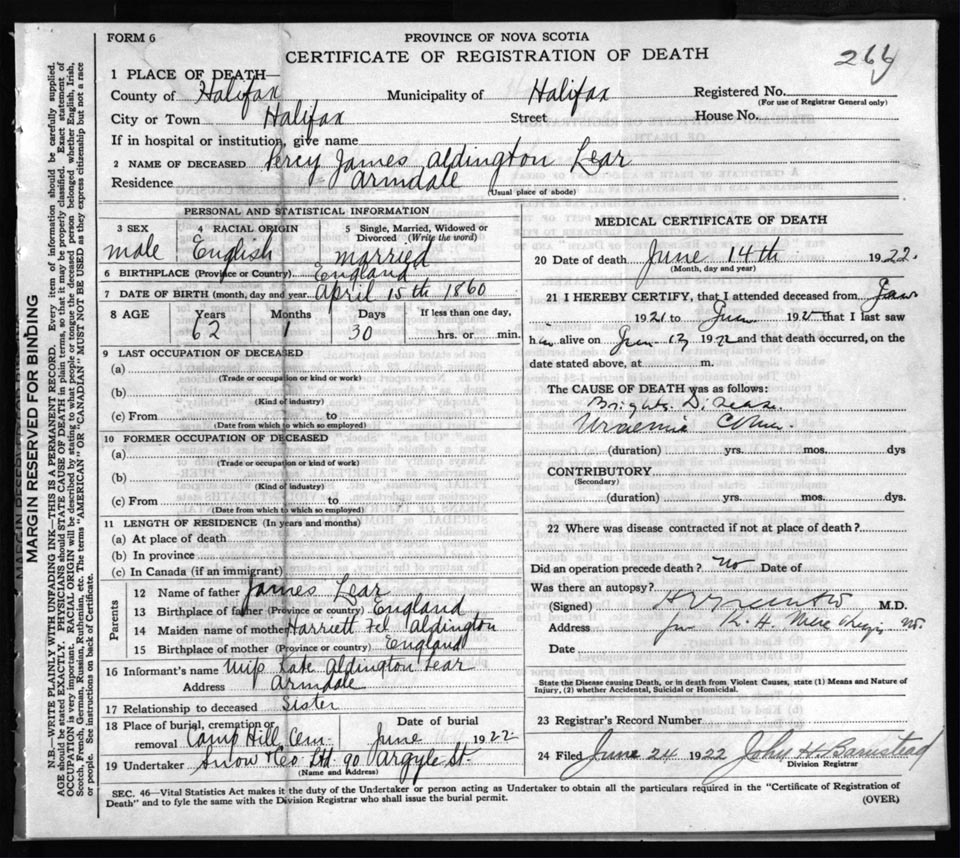 FORM 6
PROVINCE OF NOVA SCOTIA
CERTIFICATE OF REGISTRATION OF DEATH
266
1 PLACE OF DEATH—
County of Halifax Municipality of Halifax Registered No.
(For use of Registrar General only)
City or Town Halifax Street House No.
If in hospital or institution, give name
2 NAME OF DECEASED Percy James Aldington Lear
Residence Armdale
(Usual place of abode)
PERSONAL AND STATISTICAL INFORMATION
3 SEX 4 RACIAL ORIGIN 5 Single, Married, Widowed or Divorced (Write the word)
male English married
6 BIRTHPLACE (Province or Country) England
7 DATE OF BIRTH (month, day and year) April 15th 1860
8 AGE Years Months Days If less than one day,
62 1 30 hrs. or min.
9 LAST OCCUPATION OF DECEASED
(a)
(Trade or occupation or kind or work)
(b)
(Kind of industry)
(c) From to
(Date from which to which so employed)
10 FORMER OCCUPATION OF DECEASED
(a)
(Trade or occupation or kind of work)
(b)
(Kind of industry)
(c) From to
(Date from which to which so employed)
11 LENGTH OF RESIDENCE (In years and months)
(a) At place of death
(b) In province
(c) In Canada (if an immigrant)
Parents
12 Name of father James Lear
13 Birthplace of father (Province or country) England
14 Maiden name of mother Harriett Aldington
15 Birthplace of mother (Province or country) England
16 Informant's name Miss Kate Aldington Lear
Address Armdale
17 Relationship to deceased Sister
18 Place of burial, cremation or removal Camp Hill Cem. Date of burial June 1922
19 Undertaker Snow & Co Ltd. 90 Argyle St.
(Name and Address)
MEDICAL CERTIFICATE OF DEATH
20 Date of death June 14th 1922.
(Month, day and year)
21 I HEREBY CERTIFY, that I attended deceased from Jan
1921 to June 192 that I last saw
him alive on June 13 1922 and that death occurred, on the
date stated above, at m.
The CAUSE OF DEATH was as follows:
Brights Disease
Uraemic Coma.
(duration) yrs. mos. dys
CONTRIBUTORY
(Secondary)
(duration) yrs. mos. dys.
22 Where was disease contracted if not at place of death?
Did an operation precede death? No Date of
Was there an autopsy?
(Signed) M.D.
Address
Date
State the Disease causing Death, or in death from Violent Causes, state (1) Means and Nature of
Injury, (2) whether Accidental, Suicidal or Homicidal.
23 Registrar's Record Number
24 Filed June 24 1922 John H. Barnstead
Division Registrar
SEC. 46—Vital Statistics Act makes it the duty of the Undertaker or person acting as Undertaker to obtain all the particulars required in the "Certificate of Registration of
Death" and to fyle the same with the Division Registrar who shall issue the burial permit.
(OVER)
MARGIN RESERVED FOR BINDING
N.B.—WRITE PLAINLY WITH UNFADING INK—THIS IS A PERMANENT RECORD. Every item of information should be carefully supplied.
AGE should be stated EXACTLY. PHYSICIANS should STATE CAUSE OF DEATH in plain terms, so that it may be properly classified. Exact statement of
OCCUPATION is very important. RACIAL ORIGIN will be described by stating to what people or tongue the deceased person belonged whether English, Irish,
Scotch, French, German, Russian, Ruthenian, etc. The terms "AMERICAN" OR "CANADIAN" MUST NOT BE USED as they express citizenship but not a race
or people. See instructions on back of Certificate.